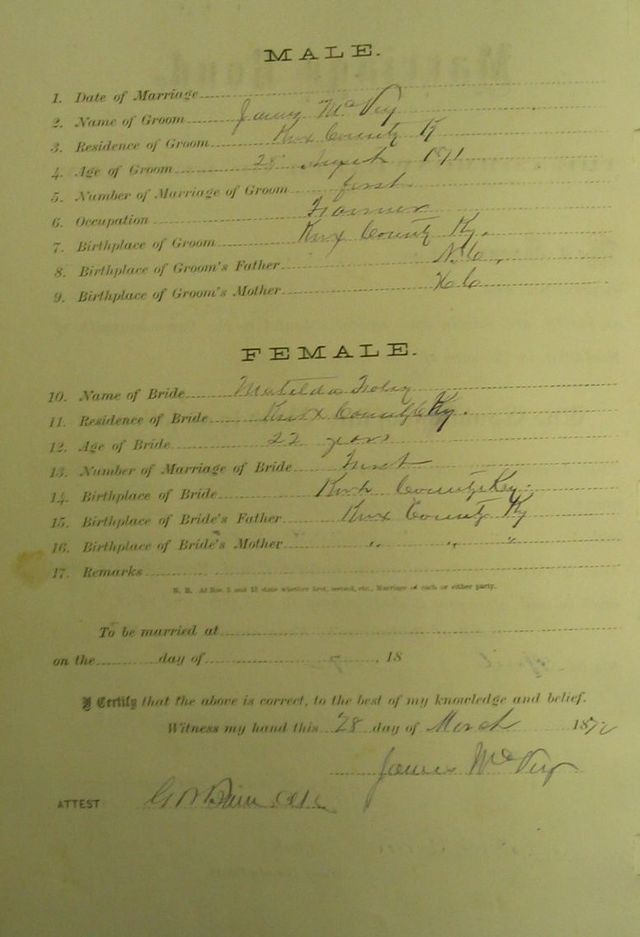 MALE.
1. Date of Marriage
2. Name of Groom James McVey
3. Residence of Groom Knox County Ky
4. Age of Groom 28 August 1871
5. Number of Marriage of Groom first
6. Occupation Farmer
7. Birthplace of Groom Knox County Ky.
8. Birthplace of Groom's Father N.C.
9. Birthplace of Groom's Mother N C
FEMALE.
10. Name of Bride Matilda Foley
11. Residence of Bride Knox County Ky.
12. Age of Bride 22 years
13. Number of Marriage of Bride First
14. Birthplace of Bride Knox County Ky.
15. Birthplace of Bride's Father Knox County Ky
16. Birthplace of Bride's Mother " " "
17. Remarks
N. B. At Nos. 5 and 13 state whether first, second, etc., Marriage of each or either party.
To be married at
on the day of , 18
I Certify that the above is correct, to the best of my knowledge and belief.
Witness my hand this 28 day of March 1872
James McVey
ATTEST